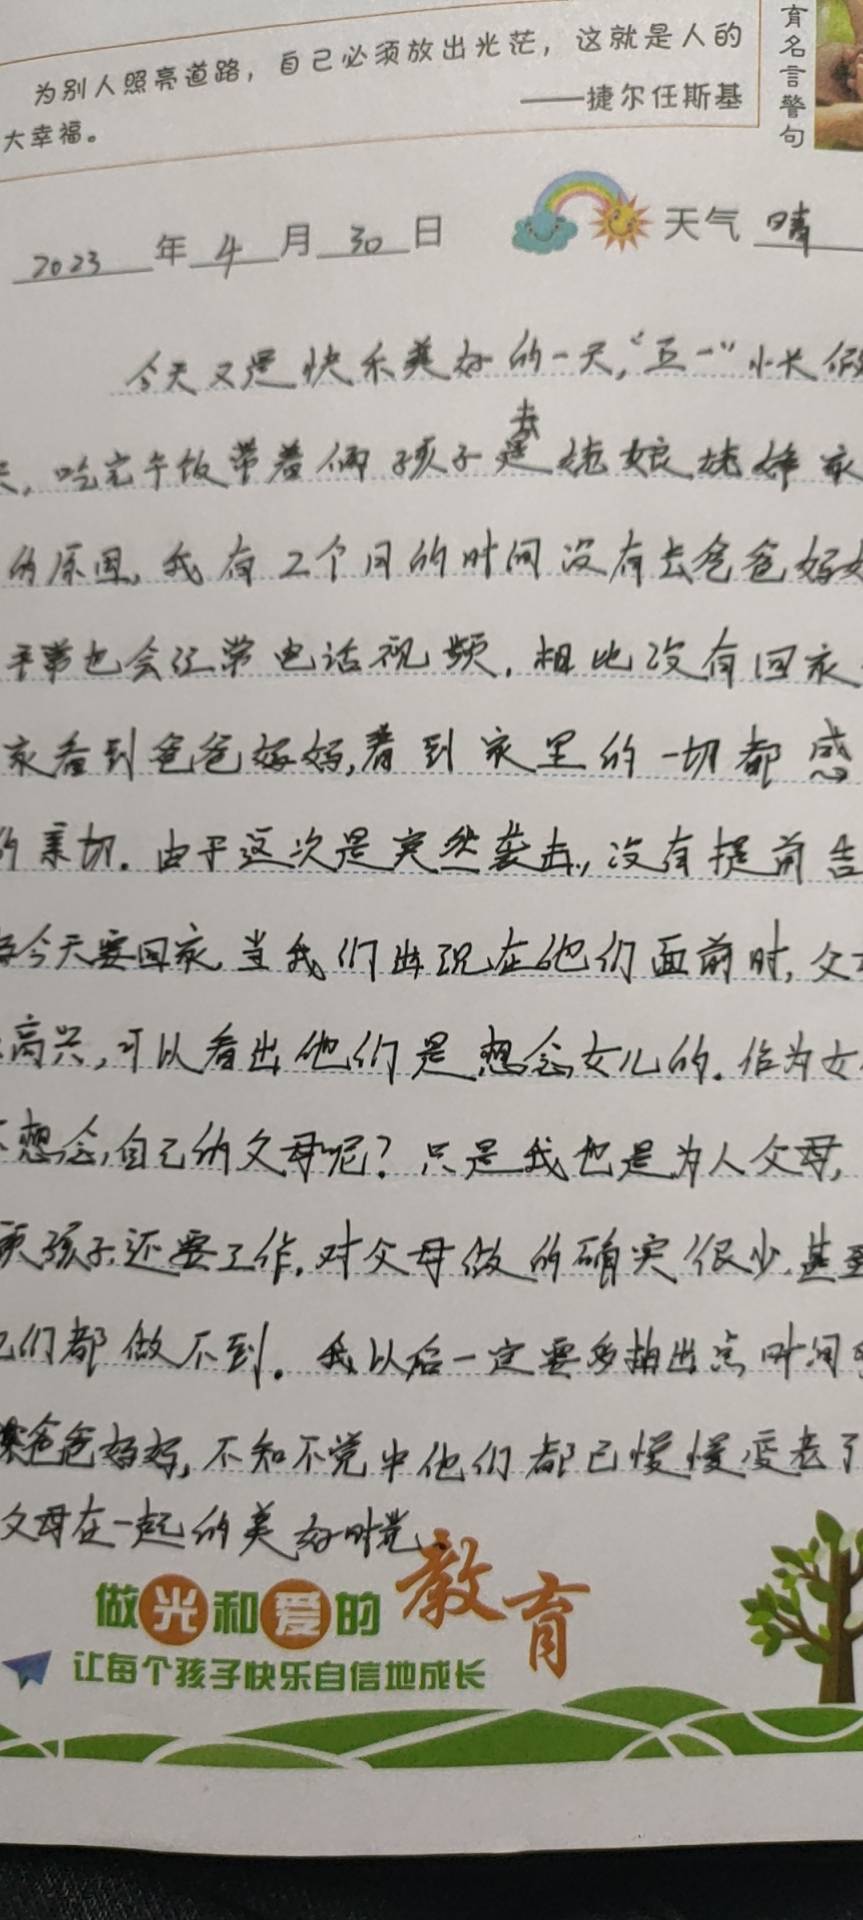 育名言警句
为别人照亮道路，自己必须放出光茫，这就是人的
大幸福。
——捷尔任斯基
2023年4月30日 天气 晴
今天又是快乐美好的一天，“五一”小长假
吃完午饭带着俩孩子去姥娘姥爷家
的原因，我有2个月的时间没有去爸爸妈妈
平常也会经常电话视频，相比没有回家
家看到爸爸妈妈，看到家里的一切都感
的亲切。由于这次是突然袭击，没有提前告
今天要回家，当我们出现在他们面前时，父
高兴，可以看出他们是想念女儿的。作为女
不想念自己的父母呢？只是我也是为人父母，
孩子，还要工作，对父母做的确实很少，甚至
们都做不到。我以后一定要多抽出点时间
爸爸妈妈，不知不觉中他们都已慢慢变老了
父母在一起的美好时光。
做光和爱的教育
让每个孩子快乐自信地成长